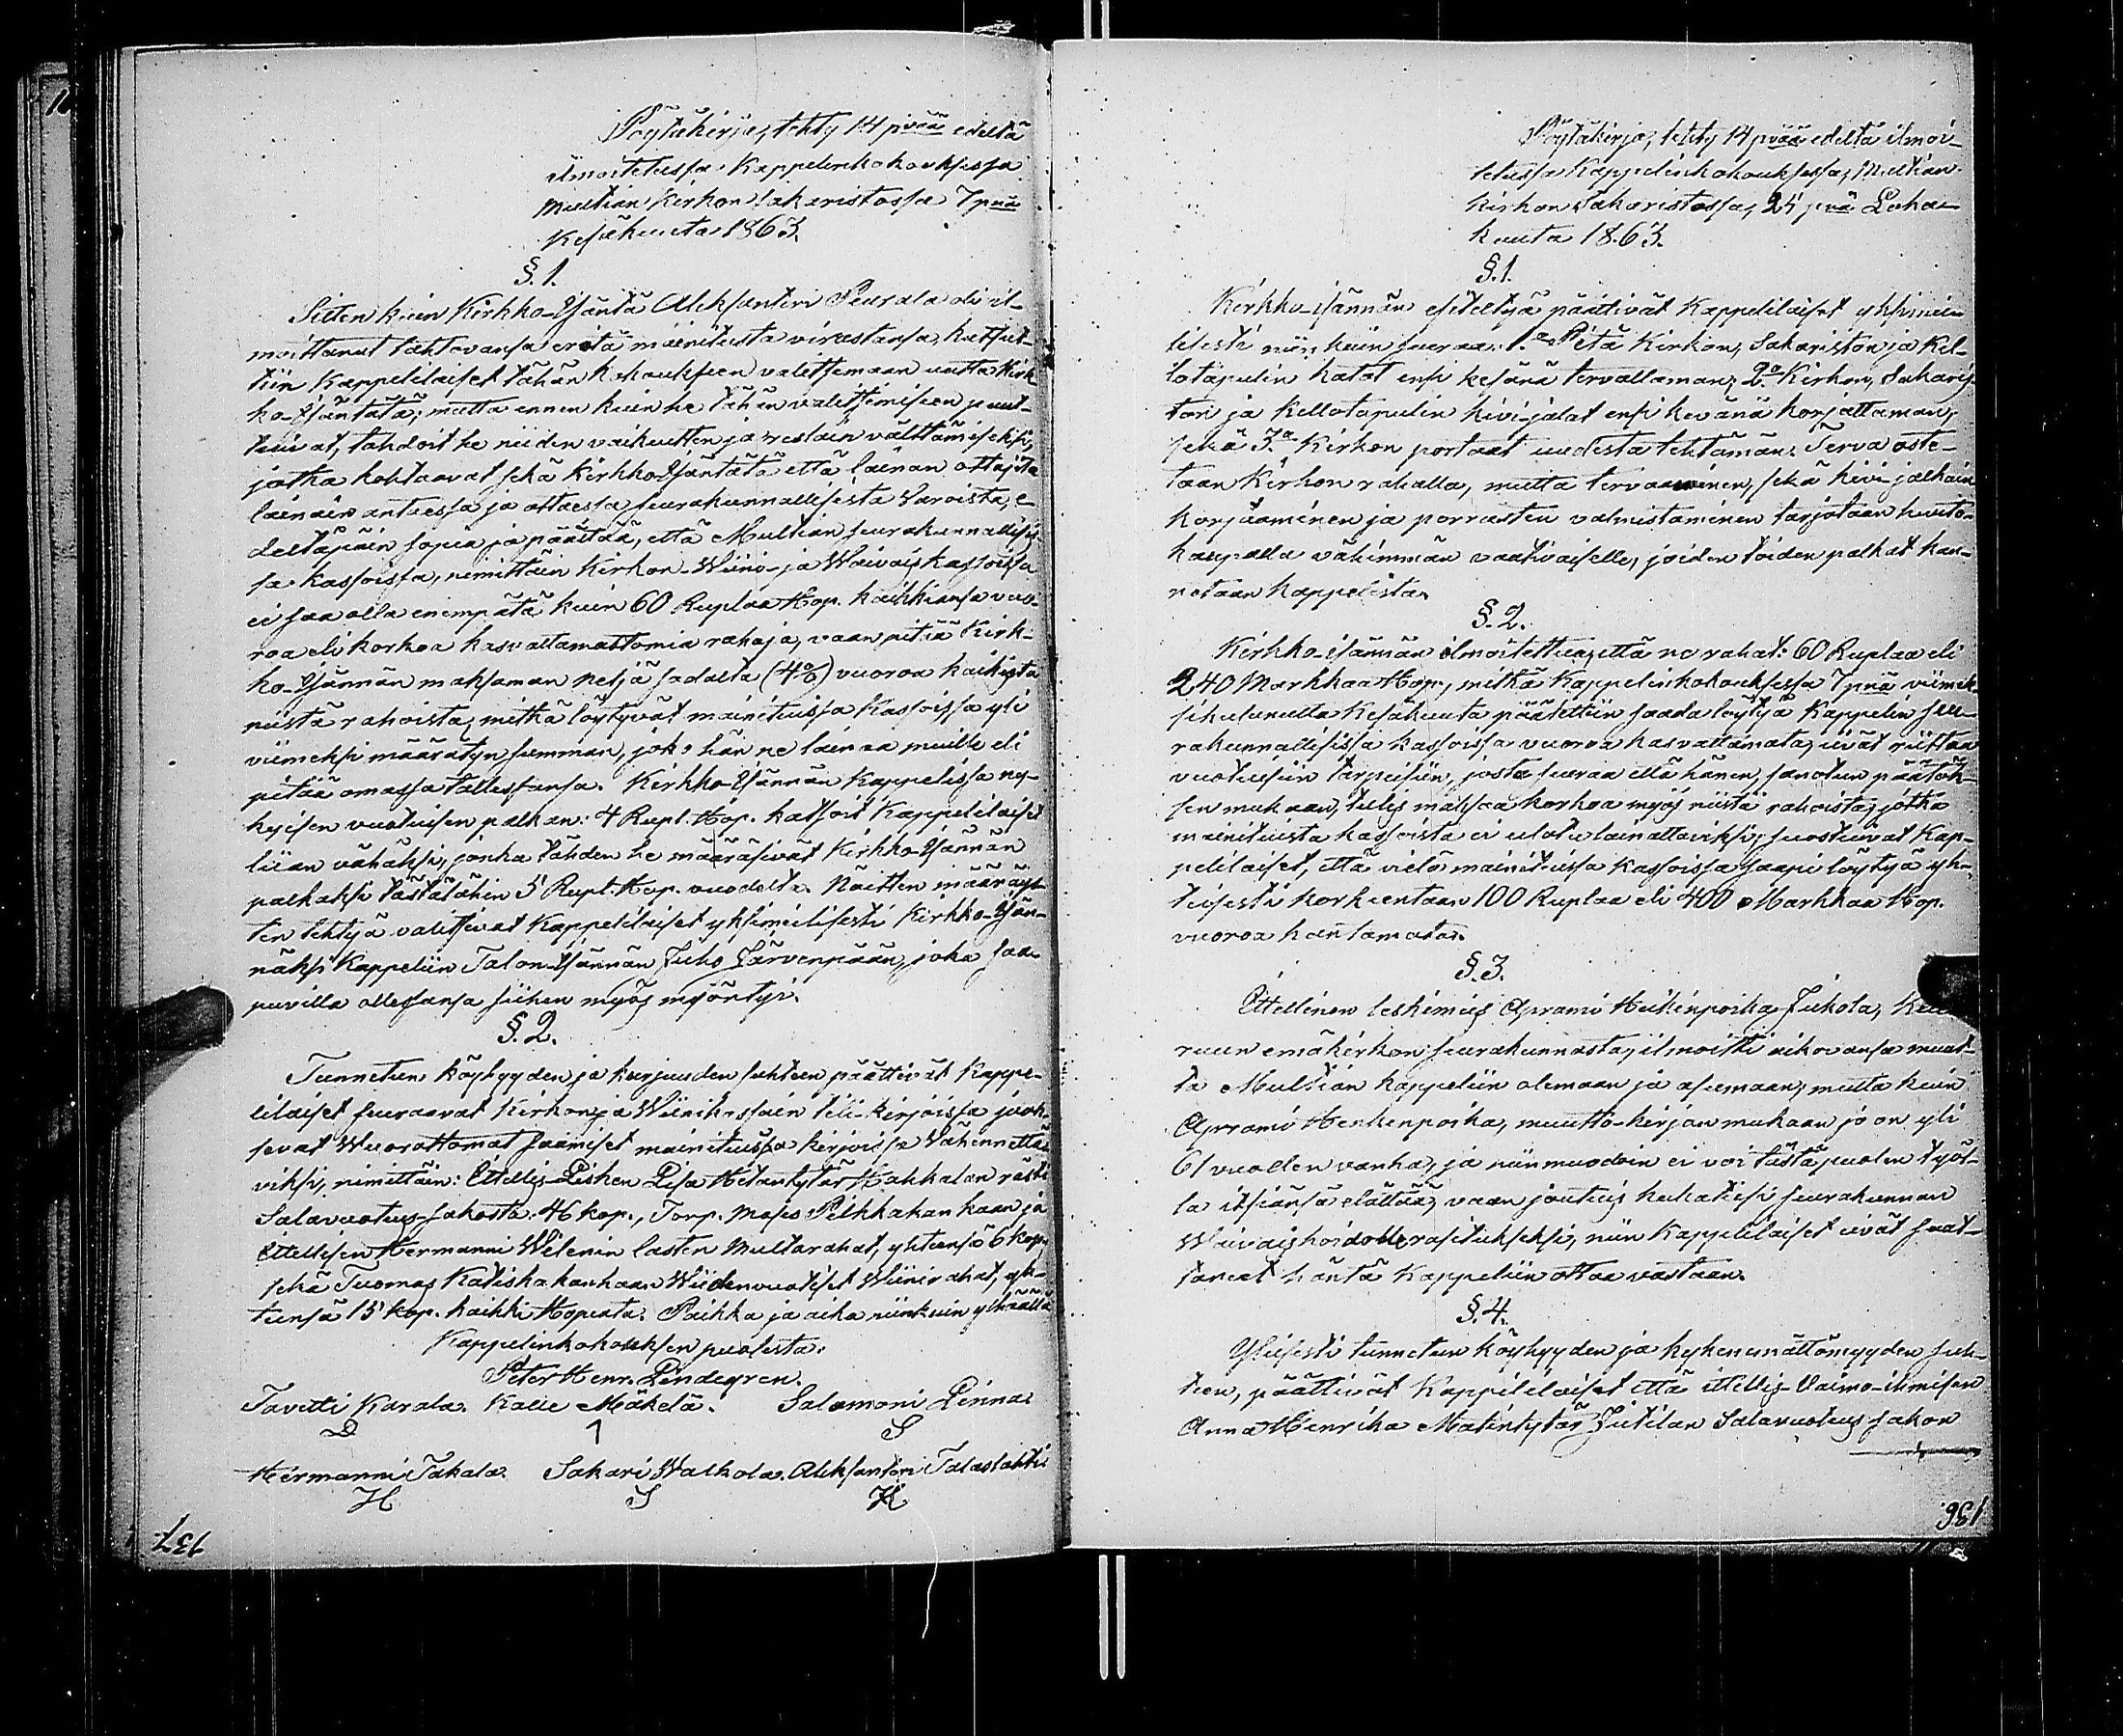 Pöytäkirja, tehty 14 pvää edeltä
ilmoitetussa Kappelinkokouksessa
Multian Kirkon Sakaristossa 7 pnä
Kesäkuuta 1863.
§. 1.
Sitten kuin Kirkko-Isäntä Aleksanteri Peurala oli il-
moittanut tahtovansa erota mainitusta virastansa, kutsut-
tiin Kappelilaiset tähän kokoukseen valitsemaan uutta Kirk-
ko-Isäntätä; mutta ennen kuin he tähän valitsemiseen puut-
tuivat, tahdoit he niiden vaikeutten ja restain välttämiseksi,
jotka kohtaavat sekä Kirkko-Isäntätä että lainan ottajita
lainain antaessa ja ottaessa seurakunnallisesta Varoista, e-
deltäpäin sopia ja päättää, että Multian seurakunnallisis-
sa kassoissa, nimittäin Kirkon- Wiini- ja Waivaiskassoissa
ei saa olla enempätä kuin 60 Ruplaa Hop. kaikkiansa vuo-
roa eli korkoa kasvattamattomia rahoja, vaan pitää Kirk-
ko-Isännän maksaman neljä sadalta (4%) vuoroa kaikista
niistä rahoista, mitkä löytyvät mainituissa Kassoissa yli
viimeksi määrätyn summan, joko hän ne lainaa muille eli
pitää omassa tallessansa. Kirkko-Isännän Kappelissa ny-
kyisen vuotuisen palkan: 4 Rupl. Hop. katsoit Kappelilaiset
liian vähäksi, jonka tähden he määräsivät Kirkko-Isännän
palkaksi tästälähin 5 Rupl. Hop. vuodelta. Näitten määräys-
ten tehtyä valitsivat Kappelilaiset yksimielisesti Kirkko-Isän-
näksi Kappeliin Talon-Isännän Juho Järvenpään, joka saa-
puvilla ollessansa siihen myös myöntyi.
§. 2.
Tunnetun köyhyyden ja kurjuuden suhteen päättivät Kappe-
lilaiset seuraavat Kirkon ja Wiinikassain tili-kirjoissa juok-
sevat Wuorottomat saamiset mainituissa kirjoissa Vähennettä-
viksi, nimittäin: Itellis-Lesken Lisa Hetantytär Kahkalan rästi
Salavuoteus-sakosta 46 kop., Torp. Moses Pelkkakankaan ja
Itellisen Hermanni Wilenin lasten Multarahat, yhteensä 6 kop.
sekä Tuomas Katiskakankaan Wiidenvuotiset Wiinirahat, yh-
teensä 15 kop. kaikki Hopeata. Paikka ja aika niinkuin ylhäällä
Kappelinkokouksen puolesta:
Peter Henr. Lindegren.
Tavetti Karala. Kalle Mäkelä. Salamoni Linna
Hermanni Takala. Sakari Walkola. Aleksanteri Talaslahti
H S
137
Pöytäkirja, tehty 14 pvää edeltä ilmoi-
tetussa Kappelinkokouksessa, Multian
kirkon Sakaristossa, 25 pnä Loka-
kuuta 1863.
§. 1.
Kirkko-isännän esiteltyä päättivät Kappelilaiset yksimie-
lisesti niin kuin seuraa: 1:o Pitä Kirkon, Sakariston ja Kel-
lotapulin katot ensi kesänä tervattaman; 2:o Kirkon, Sakaris-
ton ja Kellotapulin kivi-jalat ensi kevänä korjattaman,
sekä 3:o Kirkon portaat uudesta tehtämän. Terva oste-
taan Kirkon rahalla, mutta tervaaminen, sekä kivi-jalkain
korjaaminen ja porrasten valmistaminen tarjotaan huuto-
kaupalla vähimmän vaativaiselle, joiden töiden palkat kan-
netaan kappelista.
§. 2.
Kirkko-isännän ilmoitettua, että ne rahat: 60 Ruplaa eli
240 Markkaa Hop., mitkä Kappelinkokouksessa 7 pnä viimek-
sikulunutta Kesäkuuta päätettiin saada löytyä Kappelin seu-
rakunnallisissa kassoissa vuoroa kasvattamata, eivät riittää
vuotuisiin tarpeisiin, josta seuraa että hänen, sanotun päätök-
sen mukaan, tulis maksaa korkoa myös niistä rahoista, jotka
mainituista kassoista ei uloto lainattaviksi; suostuivat Kap-
pelilaiset, että vielä mainituissa kassoissa saapi löytyä yh-
teisesti korkeentaan 100 Ruplaa eli 400 Markkaa Hop.
vuoroa kantamata.
§. 3.
Itellinen leskimies Aprami Heikinpoika Jukola, Keu-
ruun emäkirkon seurakunnasta, ilmoitti aikovansa muut-
ta Multian kappeliin olemaan ja asumaan, mutta kuin
Aprami Heikinpoika, muutto-kirjan mukaan jo on yli
61 vuoden vanha, ja niinmuodoin ei voi tästä puolen työl-
lä itsiänsä elättää, vaan joutuis kukatiesi seurakunnan
Waivaishoidolle rasitukseksi, niin Kappelilaiset eivät saat-
taneet häntä Kappeliin ottaa vastaan.
§. 4.
Yleisesti tunnetun köyhyyden ja kykenemättömyyden suh-
teen, päättivät Kappelilaiset että itellis-Vaimo-ihmisen
Anna Henrika Matintytär Jutilan Salavuoteus sakon
136